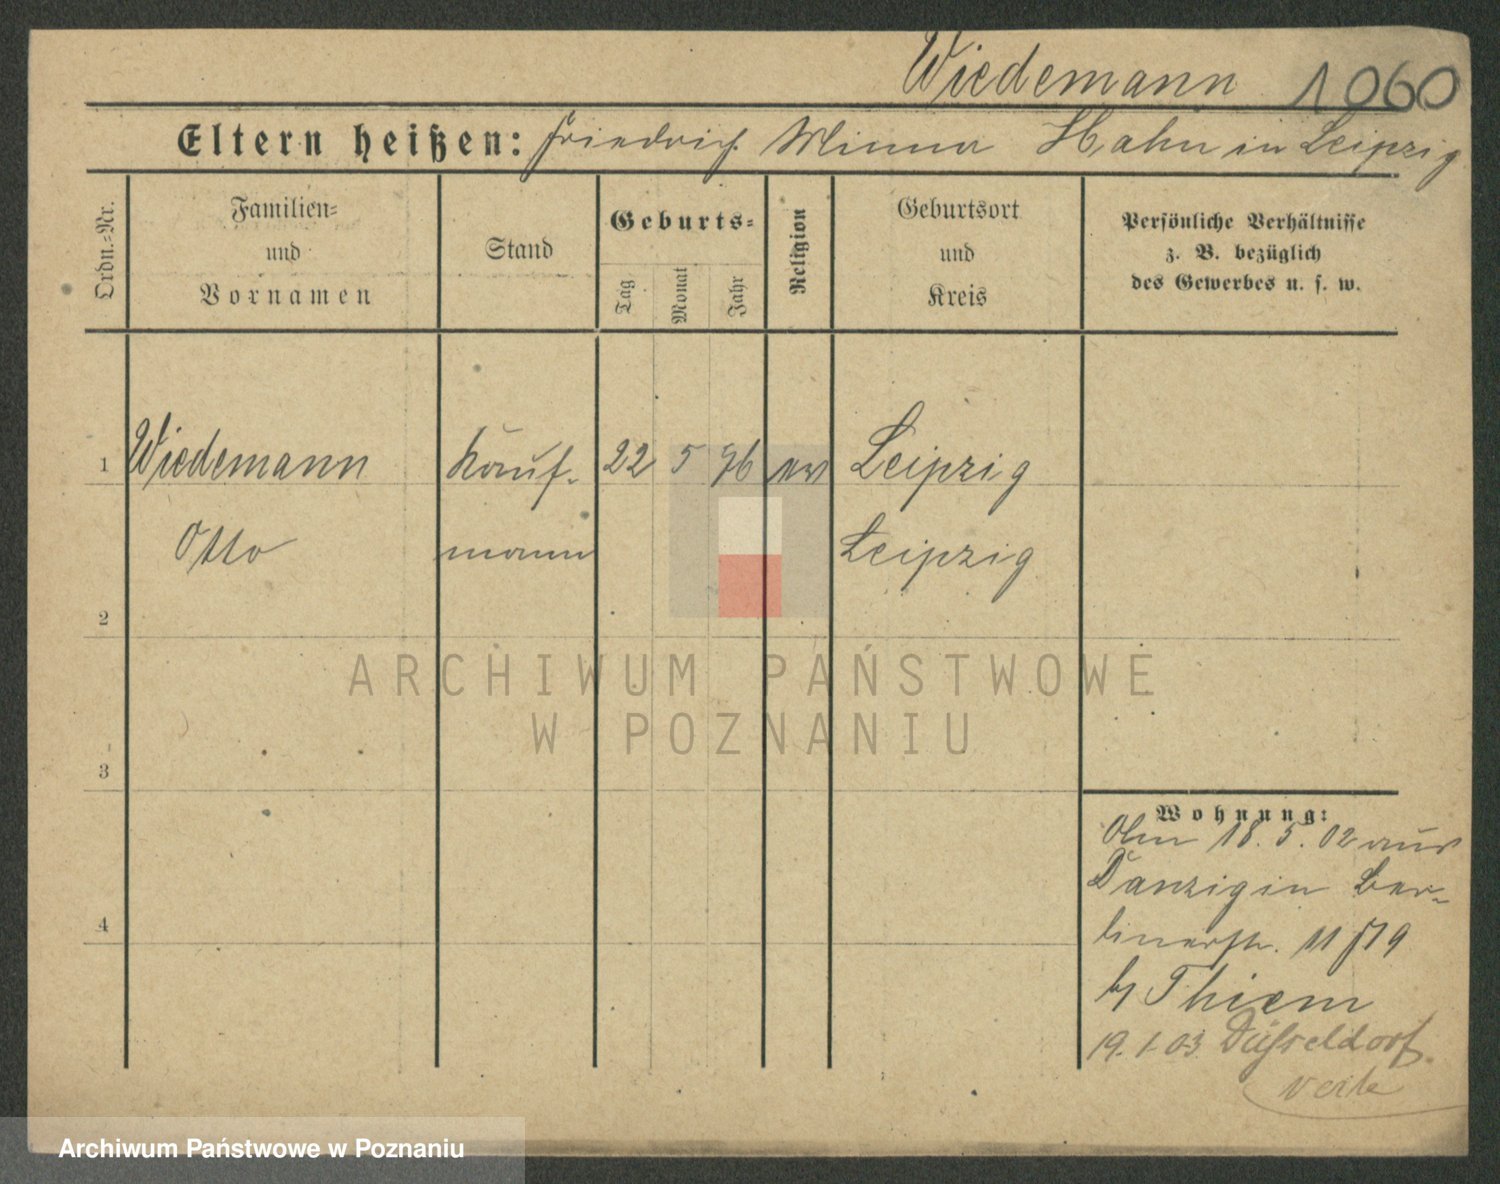 Wiedemann 1060
Eltern heißen: Friedrich Minna Hahn in Leipzig
Ordn.=Nr.
Familien=
und
Vornamen
Stand
Geburts=
Tag
Monat
Jahr
Religion
Geburtsort
und
Kreis
Persönliche Verhältnisse
z. B. bezüglich
des Gewerbes u. s. w.
1 Wiedemann Kauf- 22 5 76 ev Leipzig
Otto mann Leipzig
2
ARCHIWUM PAŃSTWOWE
W POZNANIU
3
Wohnung:
18. 5. 02 aus
Danzig in Ber-
4
linerstr. 11
b/ Thiem
19. 1. 03 Düsseldorf.
Archiwum Państwowe w Poznaniu